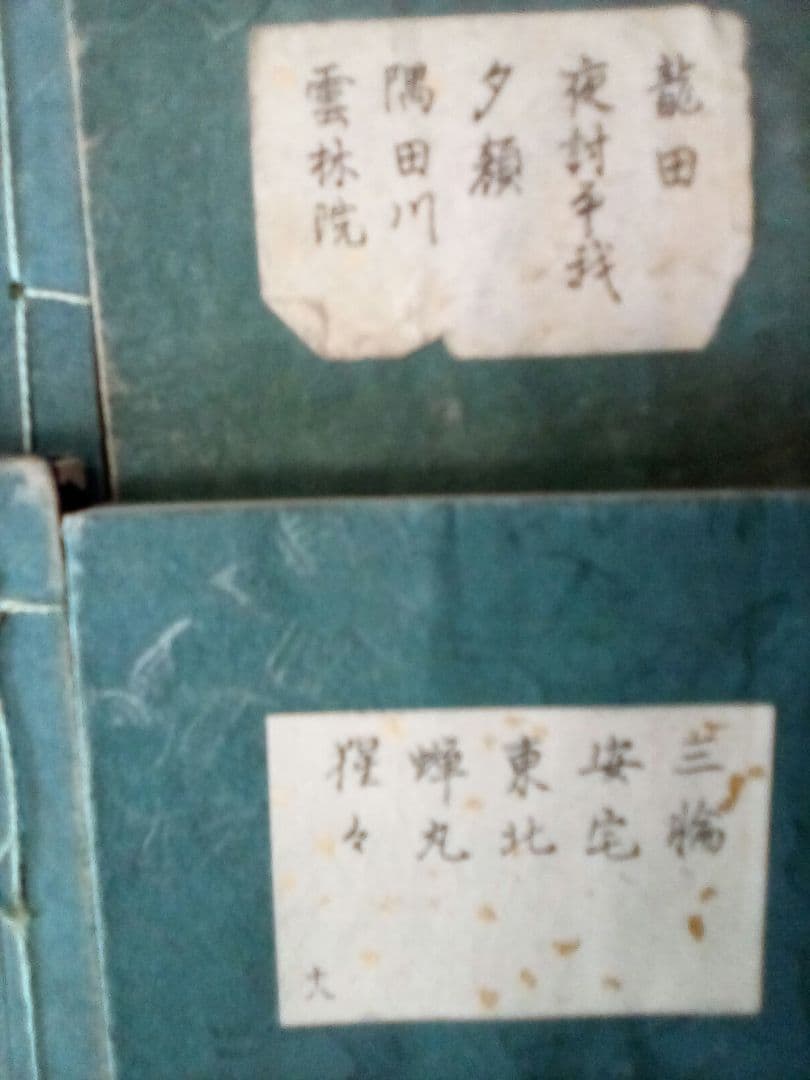 龍田
夜討曽我
夕顔
隅田川
雲林院
三輪
安宅
東北
蝉丸
猩々